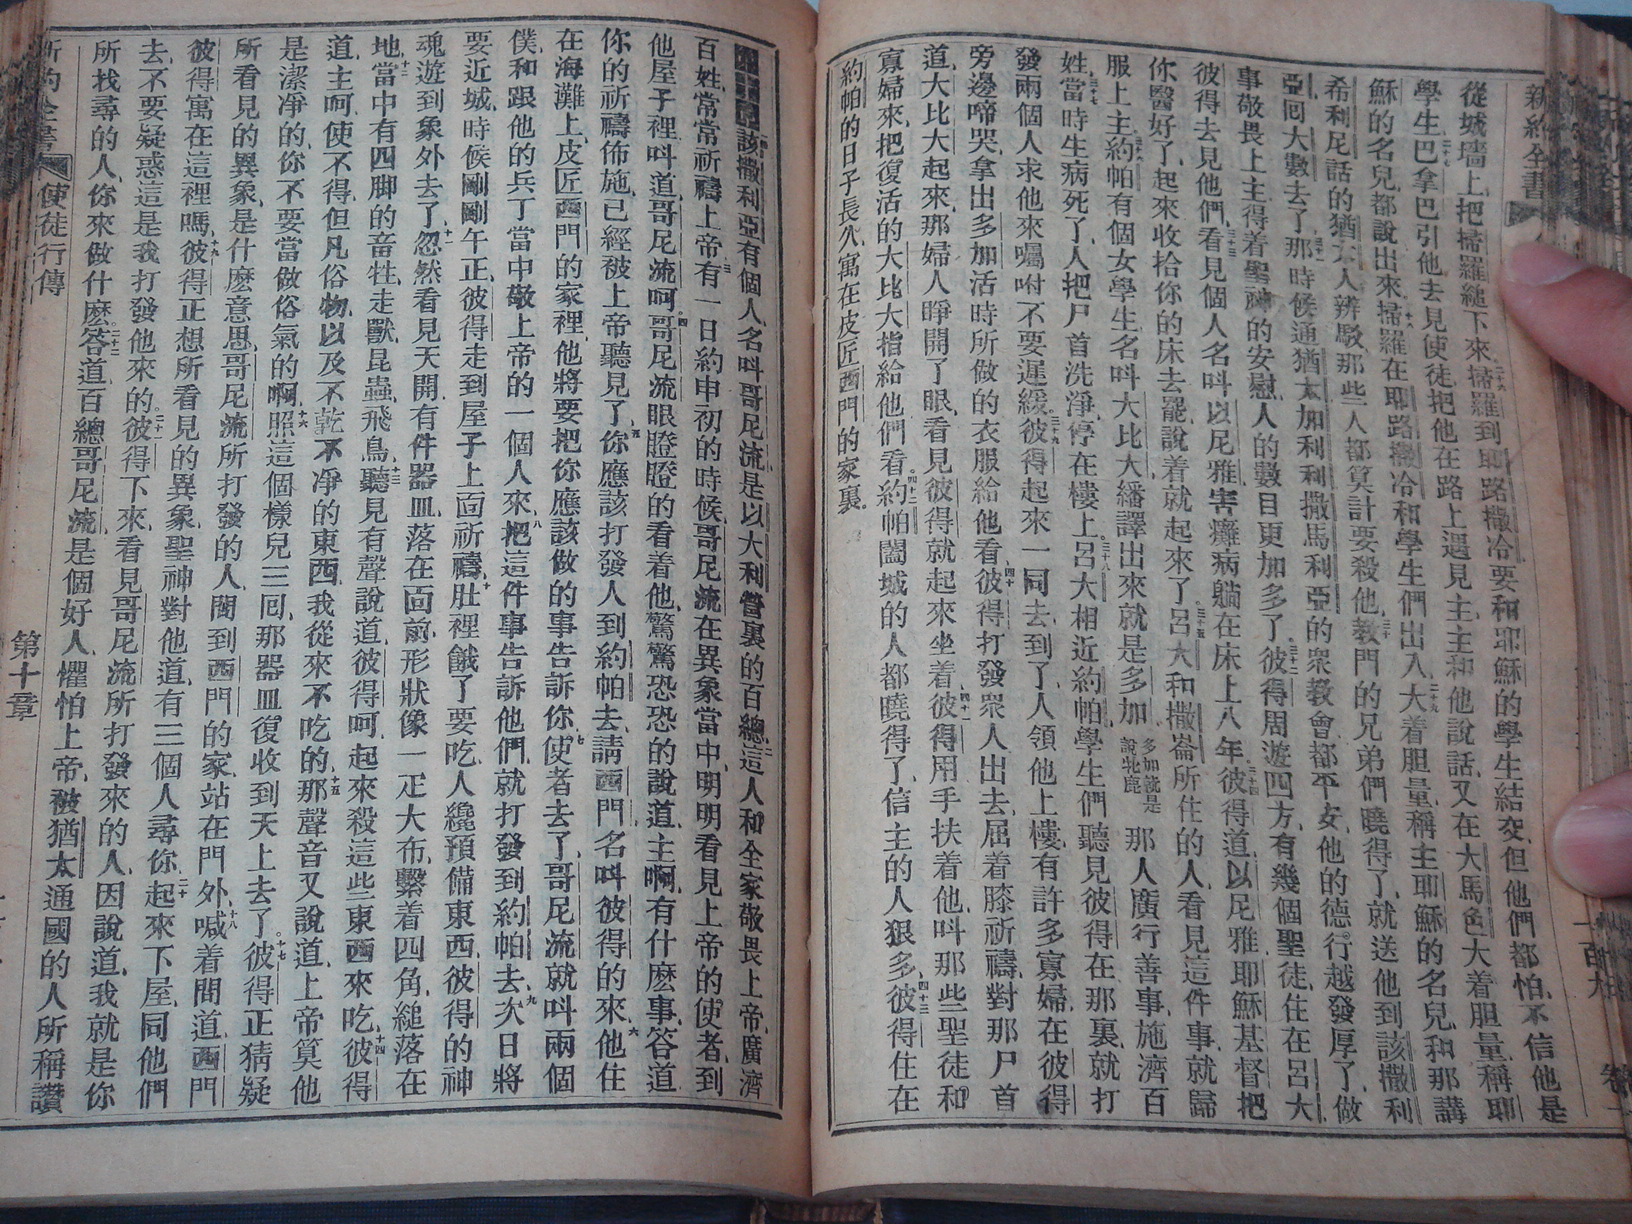 新約全書
從城墻上把掃羅縋下來二十六掃羅到耶路撒冷要和耶穌的學生結交但他們都怕不信他是
學生二十七巴拿巴引他去見使徒把他在路上遇見主主和他說話又在大馬色大着胆量稱耶
穌的名兒都說出來二十八掃羅在耶路撒冷和學生們出入二十九大着胆量稱主耶穌的名兒和那講
希利尼話的猶太人辨駁那些人都算計要殺他三十教門的兄弟們曉得了就送他到該撒利
亞回大數去了三十一那時候通猶太加利利撒馬利亞的眾教會都平安他的德行越發厚了做
事敬畏上主得着聖神的安慰人的數目更加多了三十二彼得周遊四方有幾個聖徒住在呂大
彼得去見他們三十三看見個人名呌以尼雅害癱病躺在床上八年三十四彼得道以尼雅耶穌基督把
你醫好了起來收拾你的床去罷說着就起來了三十五呂大和撒崙所住的人看見這件事就歸
服上主三十六約帕有個女學生名呌大比大繙譯出來就是多加多加就是說牝鹿那人廣行善事施濟百
姓三十七當時生病死了人把尸首洗淨停在樓上三十八呂大相近約帕學生們聽見彼得在那裏就打
發兩個人求他來囑咐不要遲緩三十九彼得起來一同去到了人領他上樓有許多寡婦在彼得
旁邊啼哭拿出多加活時所做的衣服給他看四十彼得打發眾人出去屈着膝祈禱對那尸首
道大比大起來那婦人睜開了眼看見彼得就起來坐着四十一彼得用手扶着他呌那些聖徒和
寡婦來把復活的大比大指給他們看四十二約帕闔城的人都曉得了信主的人狠多四十三彼得住在
約帕的日子長久寓在皮匠西門的家裏
一百九
該撒利亞有個人名呌哥尼流是以大利營裏的百總二這人和全家敬畏上帝廣濟
百姓常常祈禱上帝三有一日約申初的時候哥尼流在異象當中明明看見上帝的使者到
他屋子裡呌道哥尼流呵四哥尼流眼瞪瞪的看着他驚驚恐恐的說道主啊有什麽事答道
你的祈禱佈施已經被上帝聽見了五你應該打發人到約帕去請西門名呌彼得的來六他住
在海灘上皮匠西門的家裡他將要把你應該做的事告訴你七使者去了哥尼流就呌兩個
僕和跟他的兵丁當中敬上帝的一個人來八把這件事告訴他們就打發到約帕去九次日將
要近城時候剛剛午正彼得走到屋子上面祈禱十肚裡餓了要吃人纔預備東西彼得的神
魂遊到象外去了十一忽然看見天開有件器皿落在面前形狀像一疋大布繫着四角縋落在
地十二當中有四脚的畜牲走獸昆蟲飛鳥十三聽見有聲說道彼得呵起來殺這些東西來吃十四彼得
道主呵使不得但凡俗物以及不乾不凈的東西我從來不吃的十五那聲音又說道上帝算他
是潔凈的你不要當做俗氣的啊十六照這個樣兒三回那器皿復收到天上去了十七彼得正猜疑
所看見的異象是什麽意思哥尼流所打發的人問到西門的家站在門外十八喊着問道西門
彼得寓在這裡嗎十九彼得正想所看見的異象聖神對他道有三個人尋你二十起來下屋同他們
去不要疑惑這是我打發他來的二十一彼得下來看見哥尼流所打發來的人因說道我就是你
所找尋的人你來做什麽二十二答道百總哥尼流是個好人懼怕上帝被猶太通國的人所稱讚
新約全書 使徒行傳 第十章